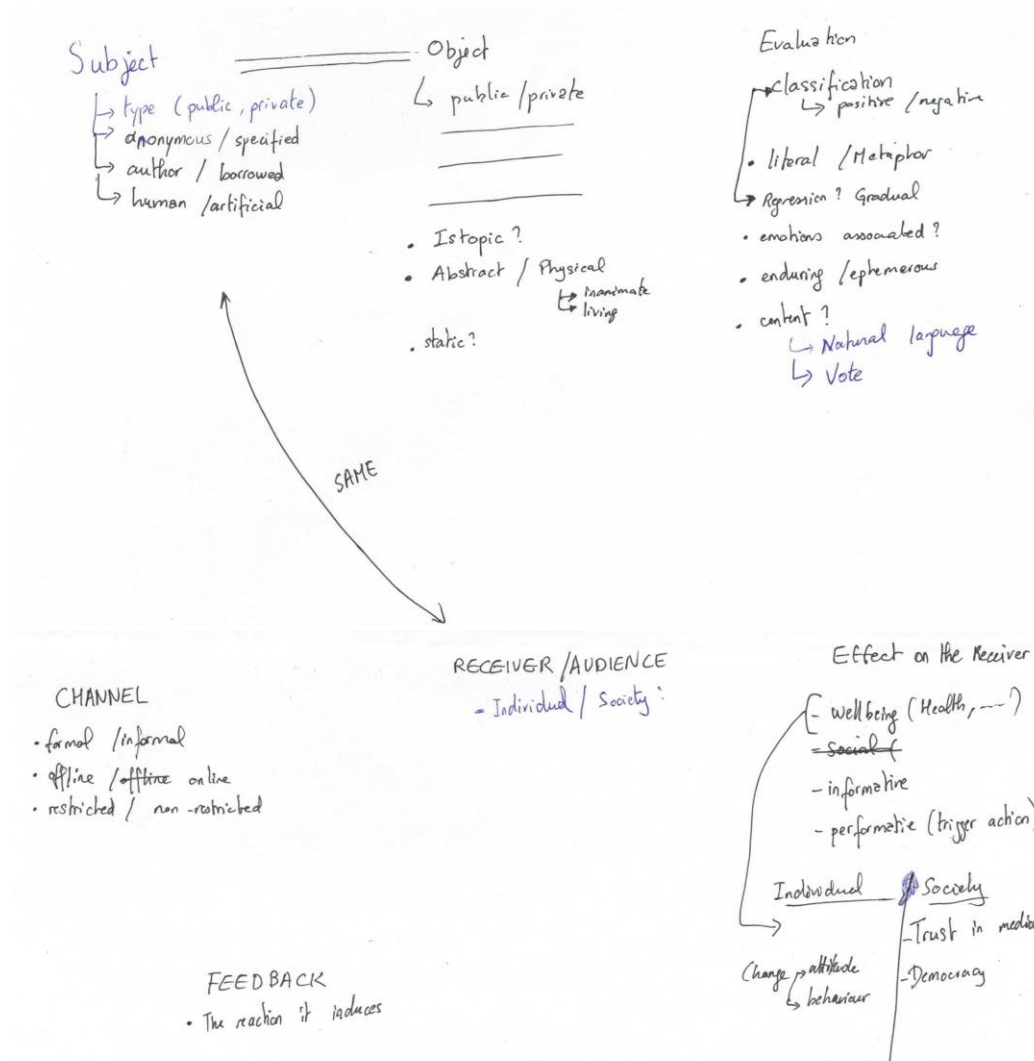 Subject
type (public, private)
anonymous / specified
author / borrowed
human / artificial
Object
public / private
• Is topic ?
• Abstract / Physical
inanimate
living
• static ?
Evaluation
classification
positive / negative
• literal / Metaphor
Regression ? Gradual
• emotions associated ?
• enduring / ephemerous
• content ?
Natural language
Vote
SAME
CHANNEL
• formal / informal
• offline / offline online
• restricted / non-restricted
RECEIVER / AUDIENCE
- Individual / Society ?
Effect on the Receiver
- Wellbeing (Health, ---- )
- Social (
- informative
- performatie (trigger action)
Individual
Society
- Trust in media
- Democracy
Change attitude
behaviour
FEEDBACK
• The reaction it induces